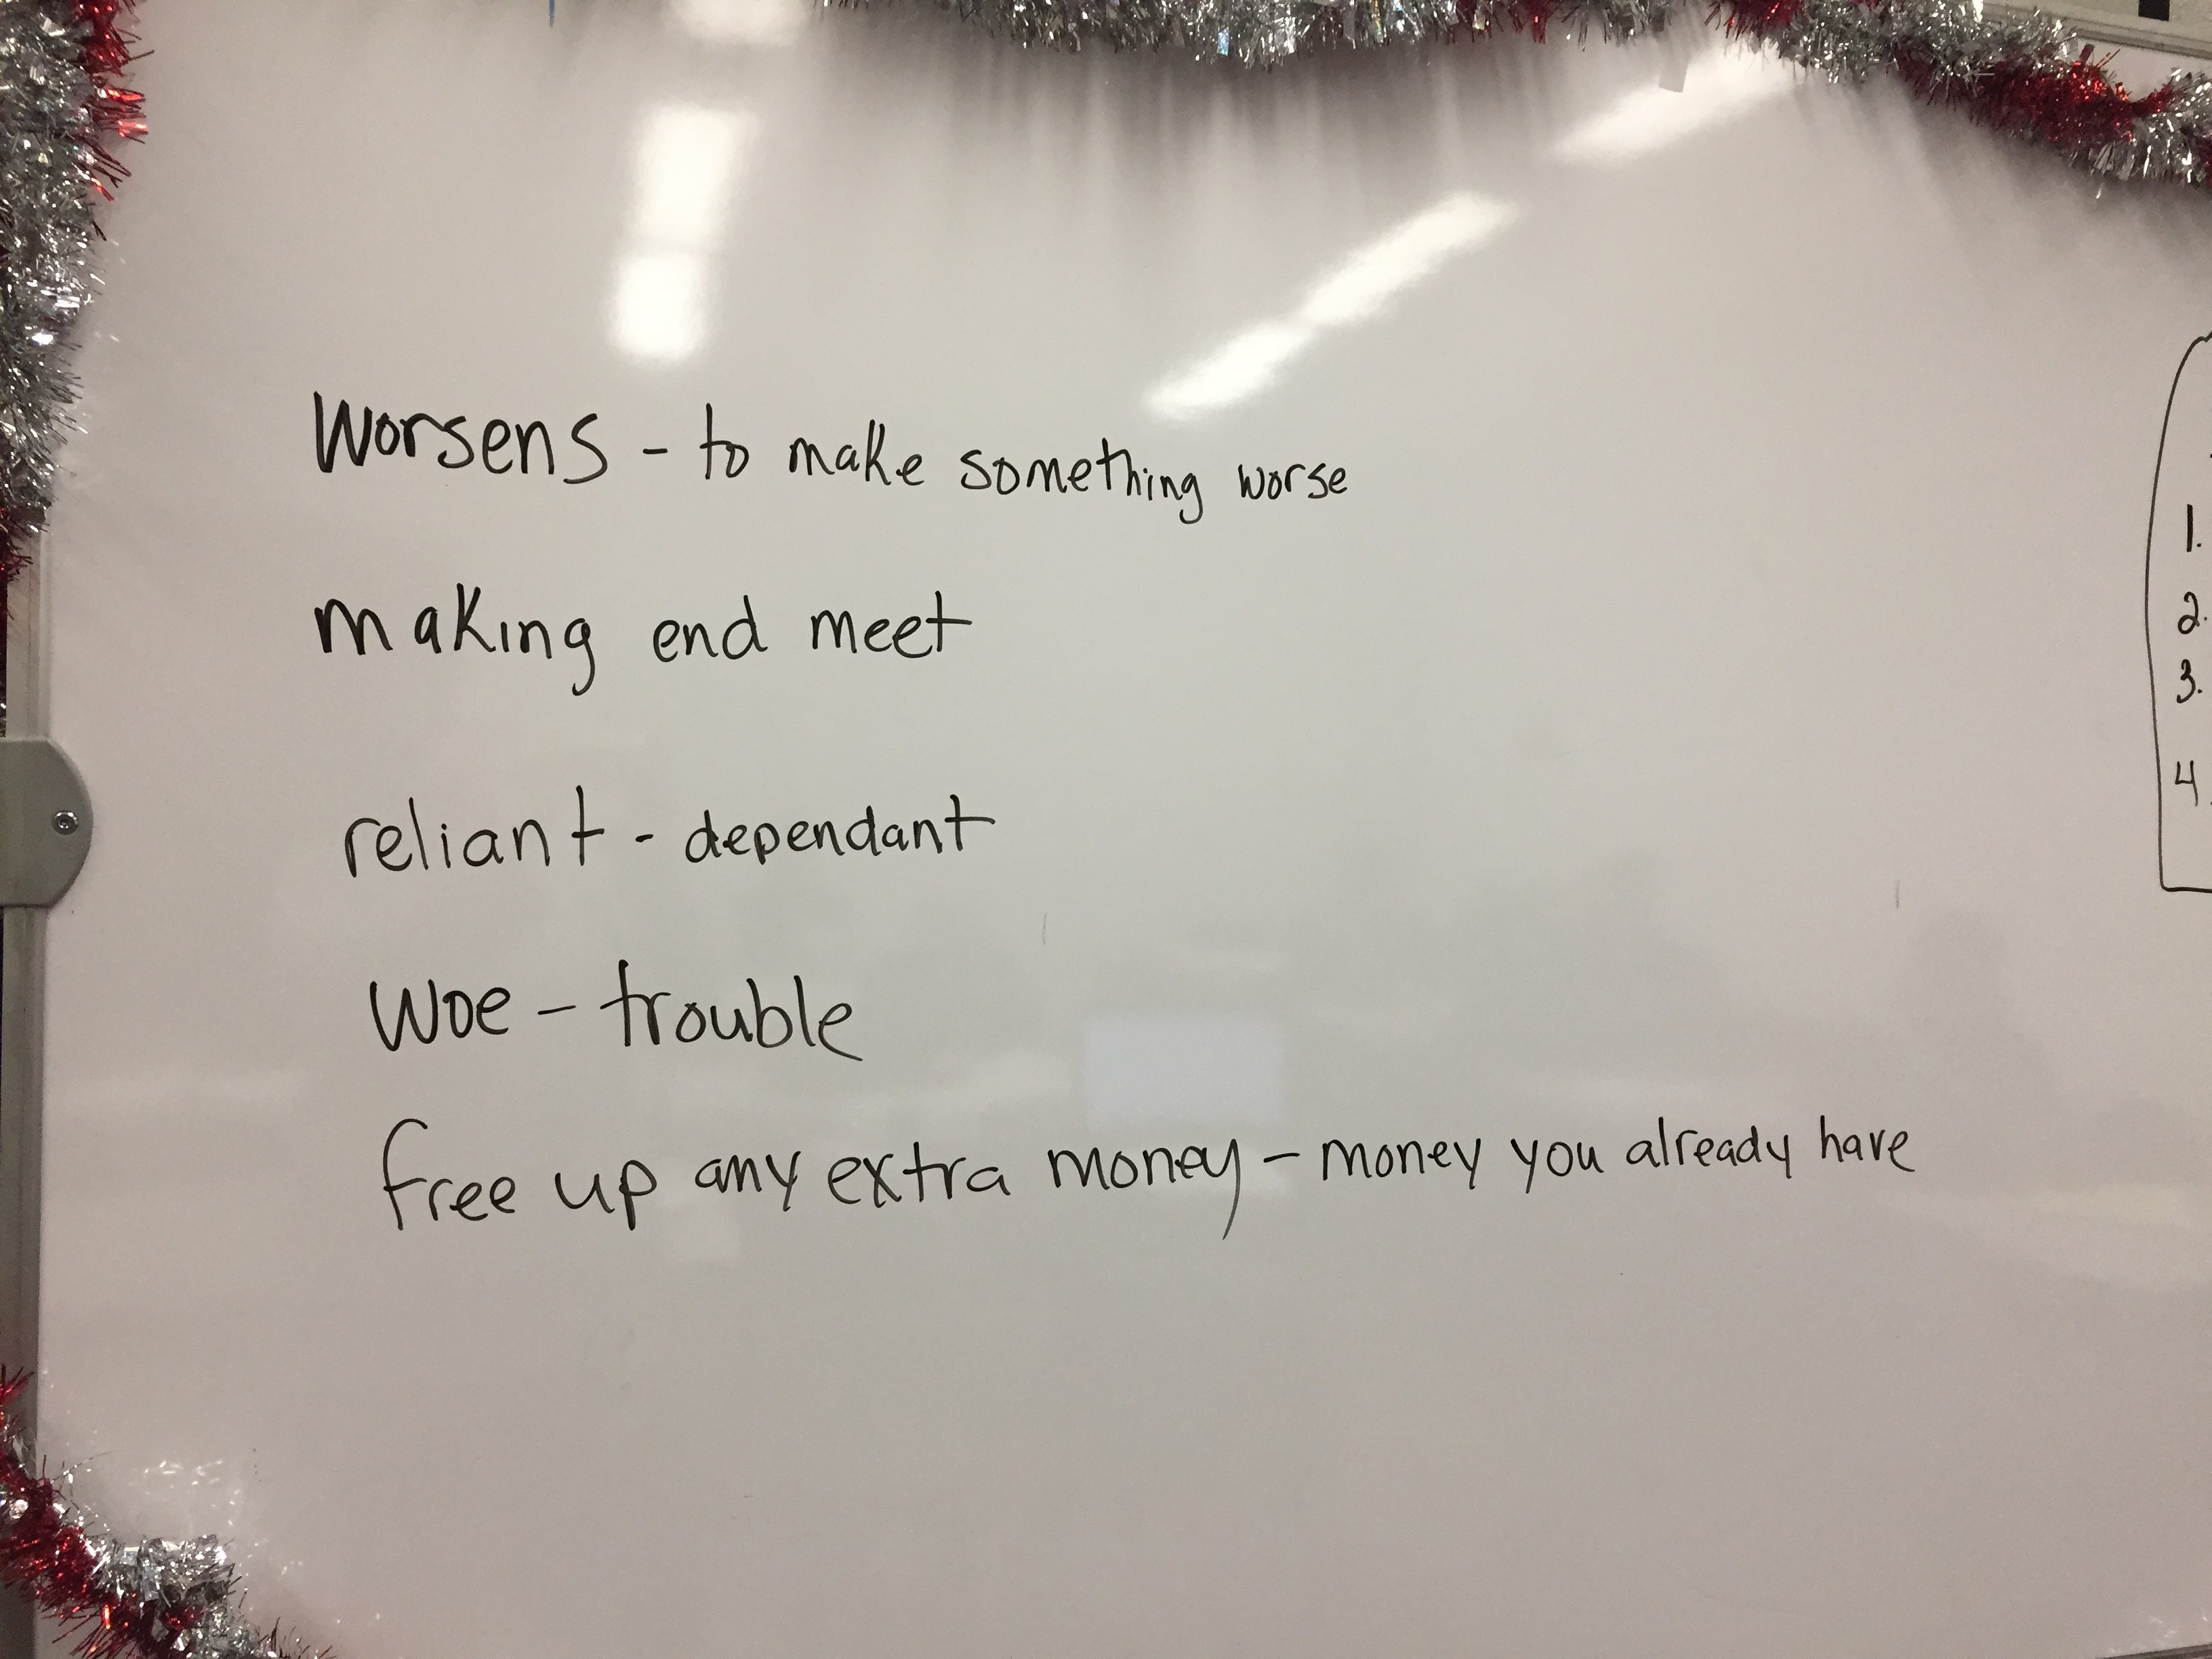 Worsens - to make something worse
making end meet
reliant - dependant
Woe - trouble
free up any extra money - money you already have
1.
2.
3.
4.